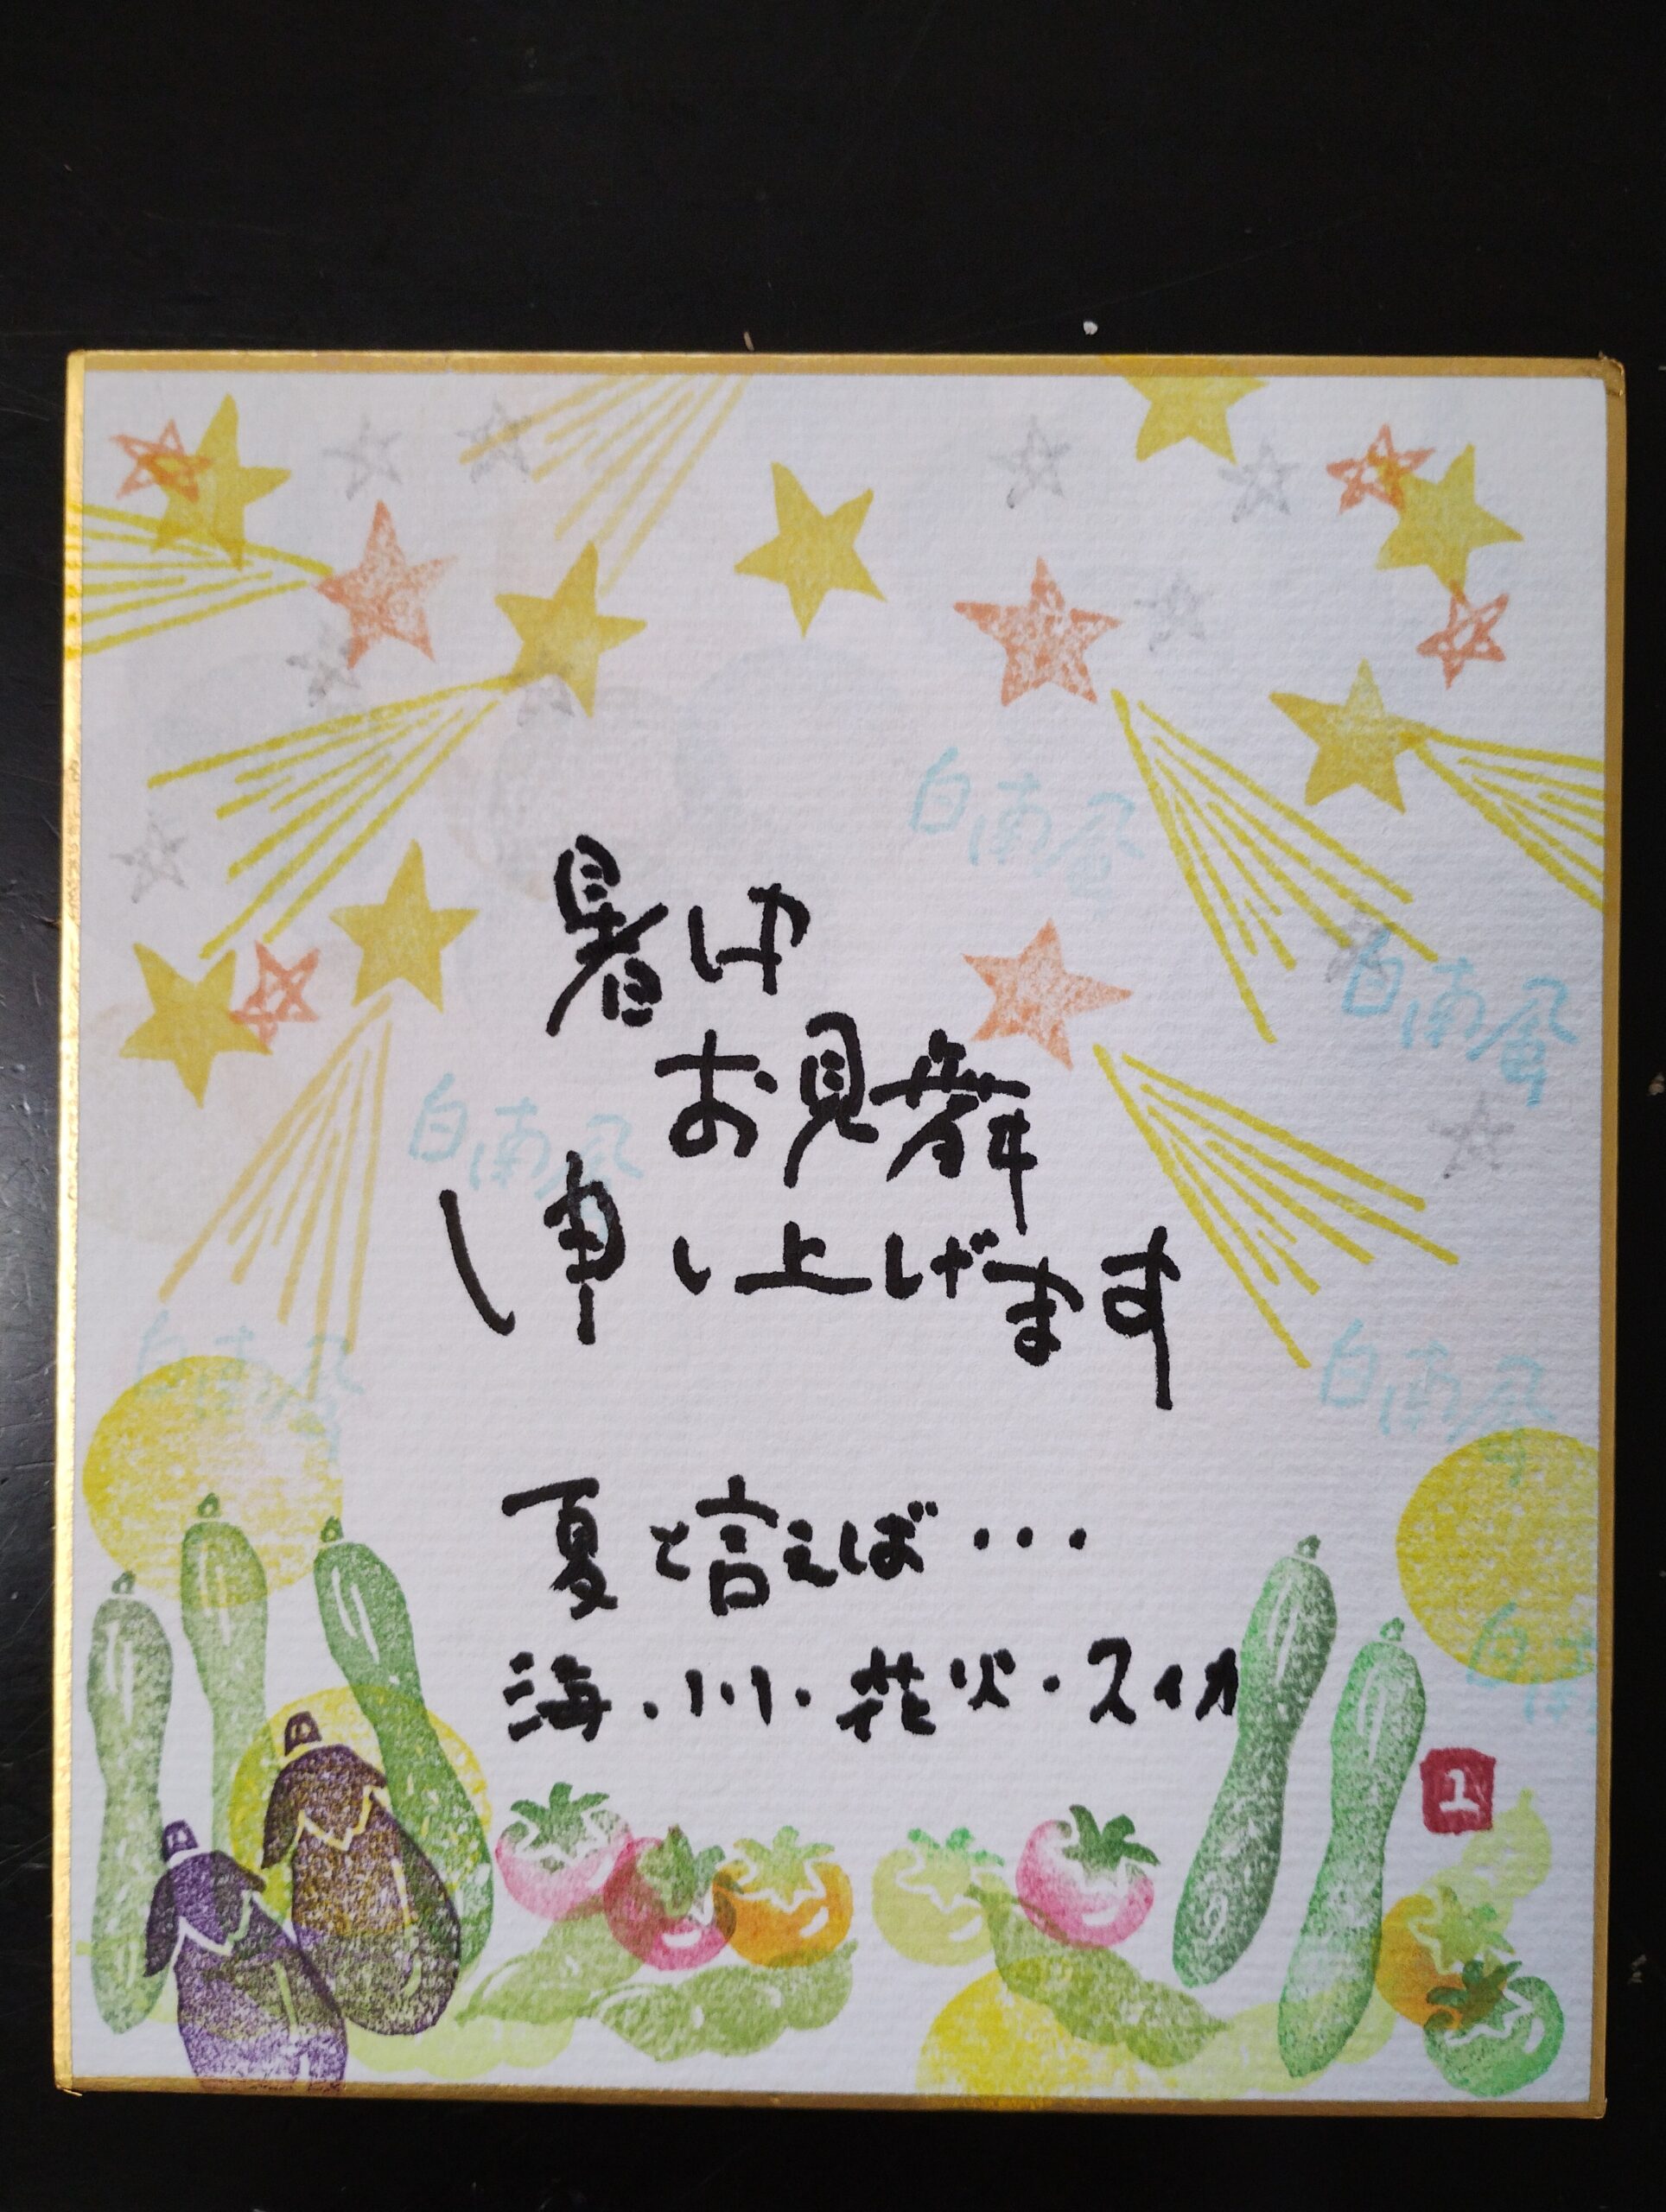 白南風
暑中
白南風
お見舞
白南風
い申し上げます
白南風
白南風
夏と言えば・・・
白南
海・川・花火・スイカ